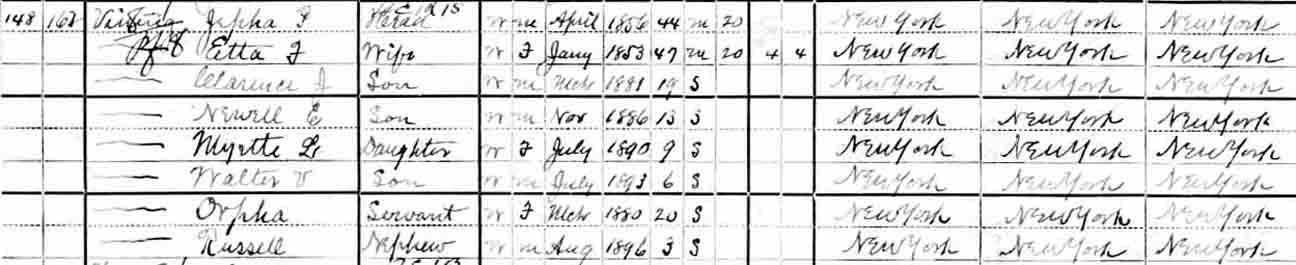 148 168 Japha F Head W m April 1856 44 m 20 New York New York New York
Etta F Wife W F Jany 1853 47 m 20 4 4 New York New York New York
Clarence J Son W m Mch 1881 19 S New York New York New York
Newell E Son W m Nov 1886 13 S New York New York New York
Myrtte L Daughter W F July 1890 9 S New York New York New York
Walter V Son W m July 1893 6 S New York New York New York
Orpha Servant W F Mch 1880 20 S New York New York New York
Russell Nephew W m Aug 1896 3 S New York New York New York